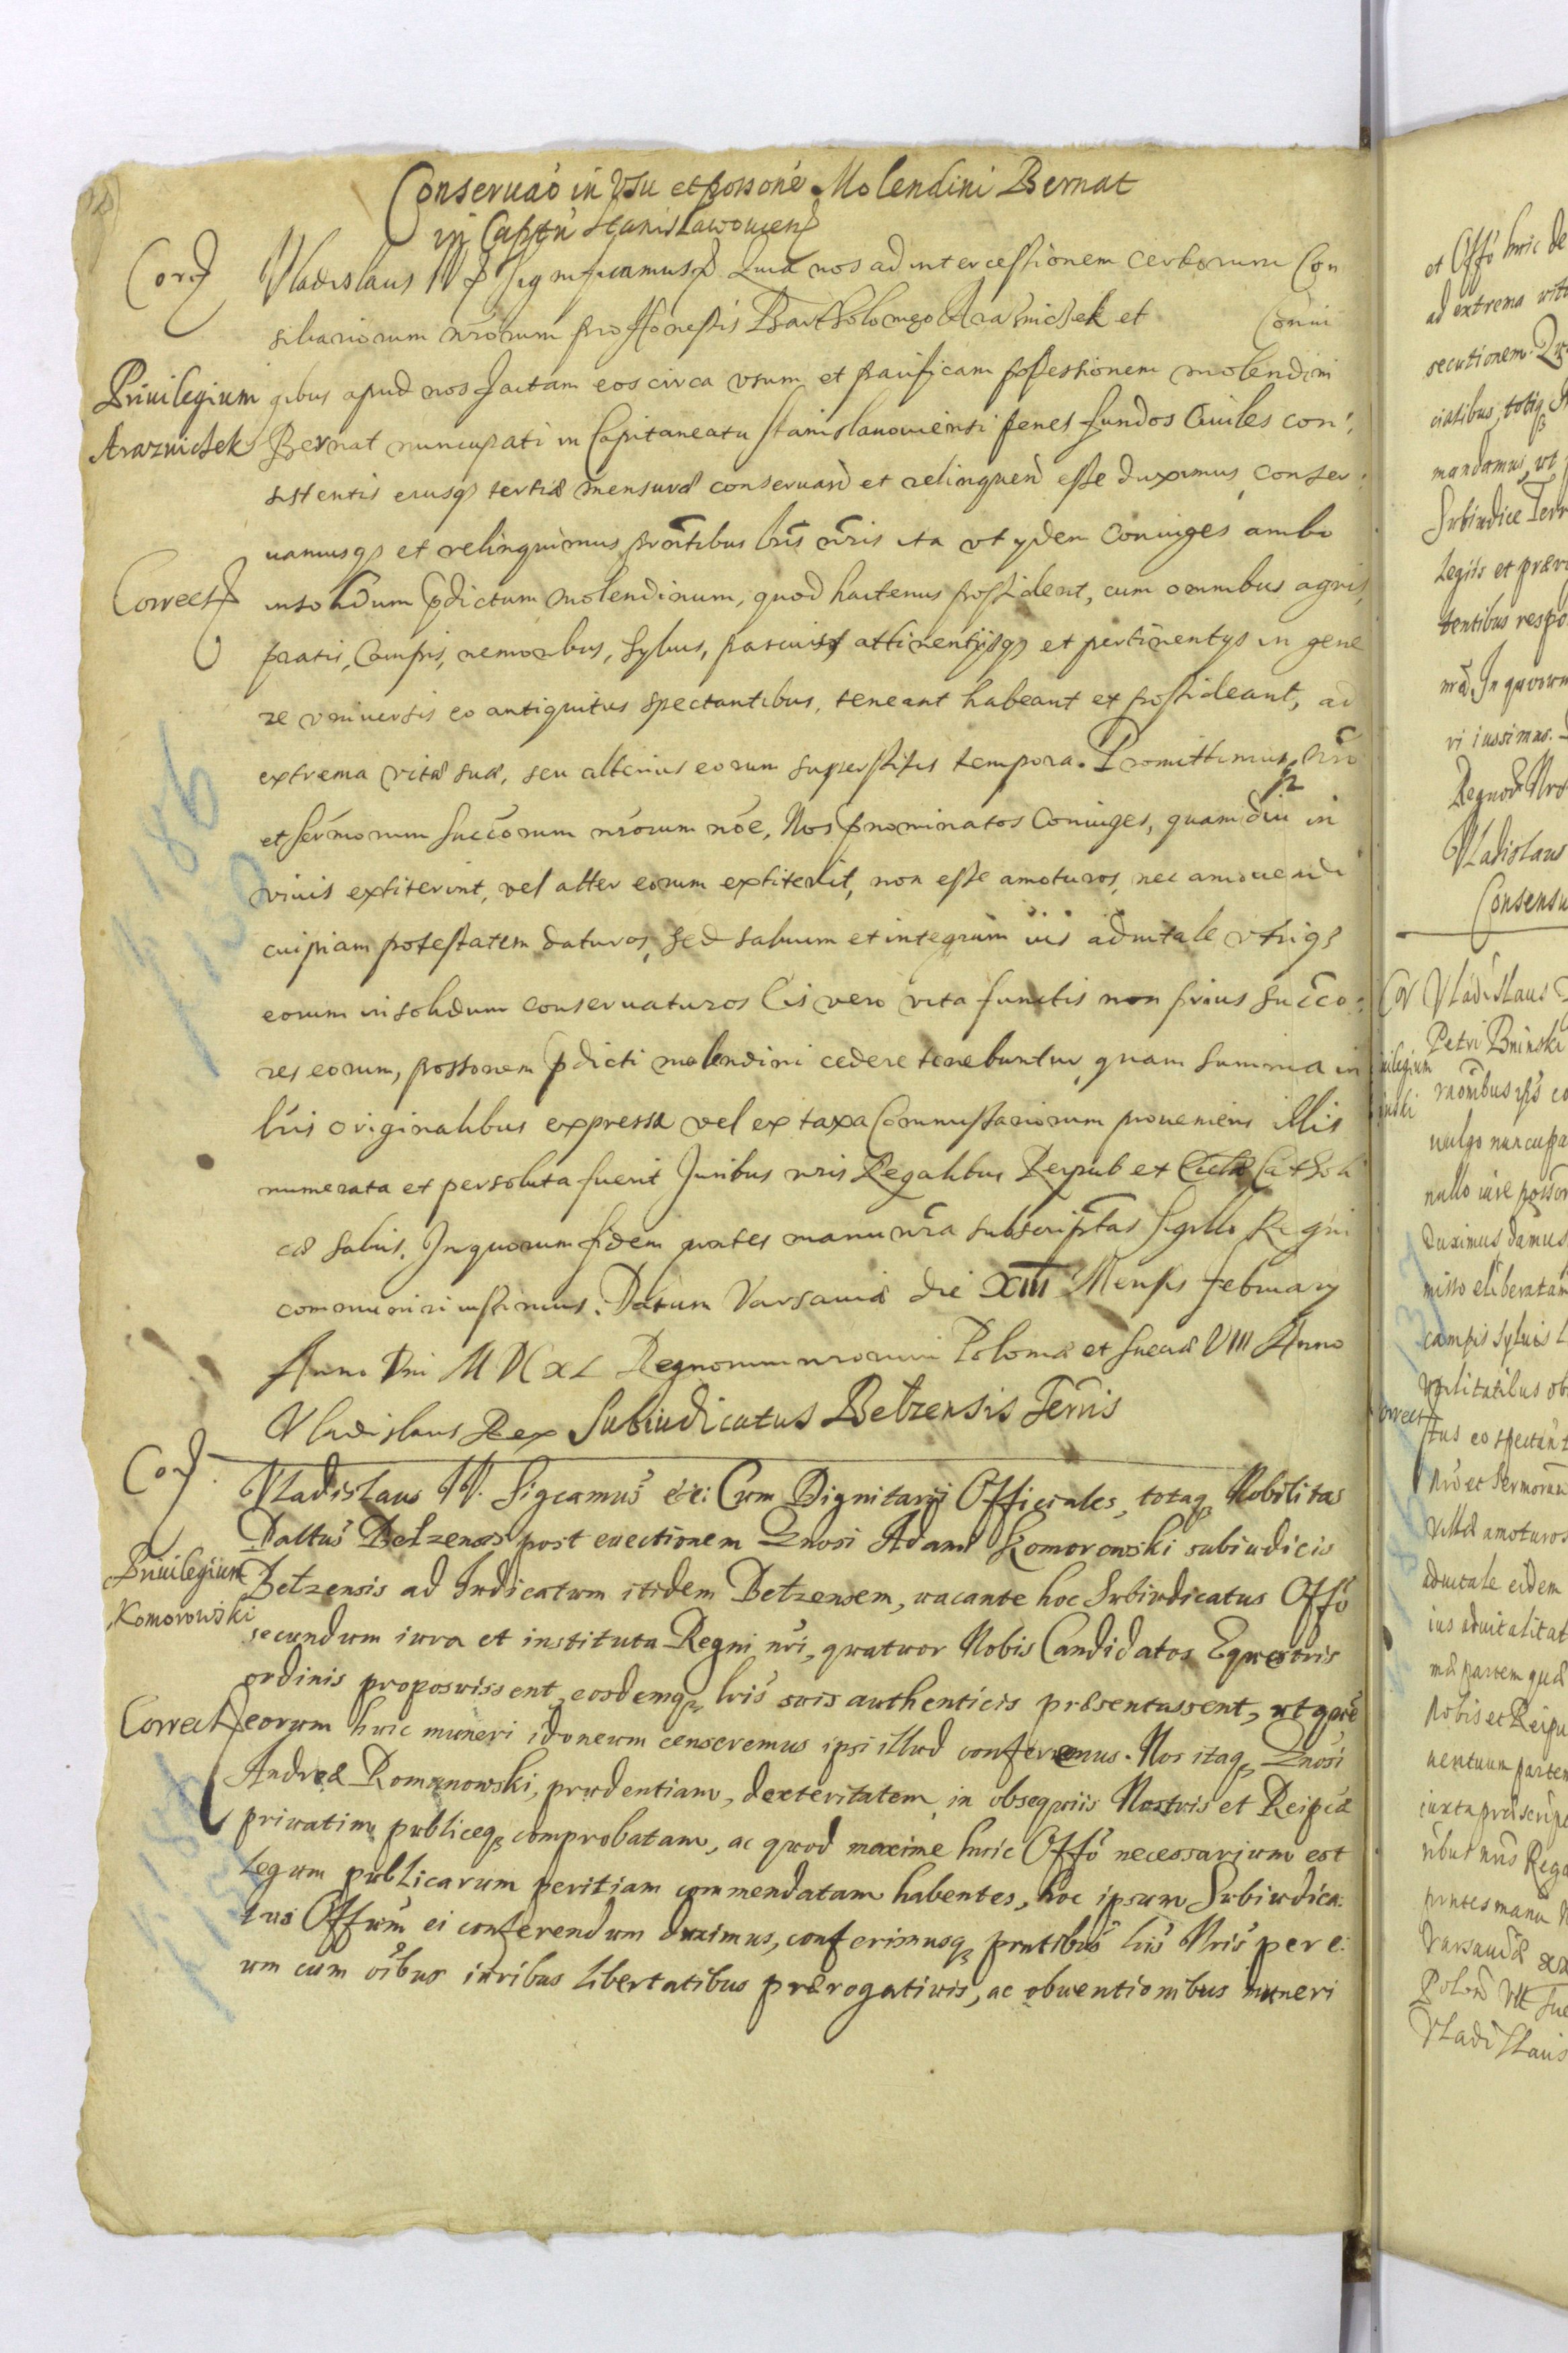 Conseruaó in Vsu et possoné Molendini Bernat
in Captú Stanislawowien
Cor
Vladislaus IV Significamus Quia nos ad intercessionem certorum Con
siliariorum nrorum pro Honestis Bartholomeo Arazmichek et Coniu
Priuilegium
Arazmichek
gibus apud nos factam eos circa vsum et pacificam possessionem molendini
Bernat nuncupati in Capitaneatu Stanislauouiensi penes fundos Ciuiles con:
sistentis eiusq tertiæ mensuræ conseruand et relinquend esse duximus, conser:
uamusq et relinquimus pntibus lris nris ita vt ydem Coniuges ambo
Correct
insolidum pdictum molendinum, quod hactenus possident, cum omnibus agris,
pratis, Campis, nemoribus, Syluis, pascuis attinentijsq et pertinentys in gene
re vniuersis eo antiquitus spectantibus, teneant habeant et possideant, ad
extrema vitæ suæ, seu alterius eorum superstitis tempora. Promittimusq nro
et Sermorum Succorum nrorum noe, Nos pnominatos Coniuges, quamdiu in
viuis extiterint, vel alter eorum extiterit, non esse amoturos, nec amouendi
cuipiam potestatem daturos, sed saluum et integrum ius aduitale vtriq
eorum insolidum conseruaturos Cis vero vita functis non prius Succo:
res eorum, possonem pdicti molendini cedere tenebuntur, quam summa in
lris originalibus expressa vel ex taxa Commissariorum proueniens illis
numerata et persoluta fuerit Juribus nris Regalibus Reipub et Catholi
cæ saluis. In quorum fidem pntes manu nra subscriptas Sigillo Regni
communiri iussimus. Datum Varsauiæ die XIII Mensis February
Anno Dni MDCXL Regnorum nrorum Poloniæ et Sueciæ VIII Anno
Vladislaus Rex
Subiudicatus Belzensis Terris
Cor
Vladislaus IV. Sigcamus &c: Cum Dignitarij Officiales, totaq Nobilitas
Palttus Belzensis post euectionem Gnosi Adami Komorowski subiudicis
Priuilegium
Komorowski
Belzensis ad Iudicatum itidem Belzensem, vacante hoc Subiudicatus Offó
secundum iura et instituta Regni nri, quatuor Nobis Candidatos Equestris
ordinis proposuissent, eosdemq lris suis authenticis præsentassent, ut quem
Correct
eorum huic muneri idoneum censeremus ipsi illud conferremus. Nos itaq Gnosi
Andreæ Romanowski, prudentiam, dexteritatem in obsequiis Nostris et Reipcæ
priuatim publiceq comprobatam, ac quod maxime huic Offó necessarium est
Legum publicarum peritiam commendatam habentes, hoc ipsum Subiudica:
tus Offum ei conferendum duximus, conferimusq pntibus lris Nris per e:
um cum oibus iuribus libertatibus prærogatiuis, ac obuentionibus muneri
et Offó huic de
ad extrema vitæ
secutionem
mandamus, vt
Subiudice Terr
Legiis et præro
tentibus respo
nra. In quorum
ri iussimus.
Regnor Nro
Vladislaus
Consensu
Cor
Vladislaus
Petri Bninski
uilegium
raonibus ipsi co
inski
vulgo nuncupa
nullo iure posson
Duximus, damus
misso eliberatam
campis syluis
Vtilitatibus ob
orrect
tus eo spectant
Nro et Sermorum
Villæ amoturos
aduitale eidem
ius aduitalitat
mæ partem quæ
Nobis et Reipu
uentuum partem
iuxta præscrip
ribus nris Rega
pntes manu N
Varsauiæ
Polon VIII Sue
Vladislaus